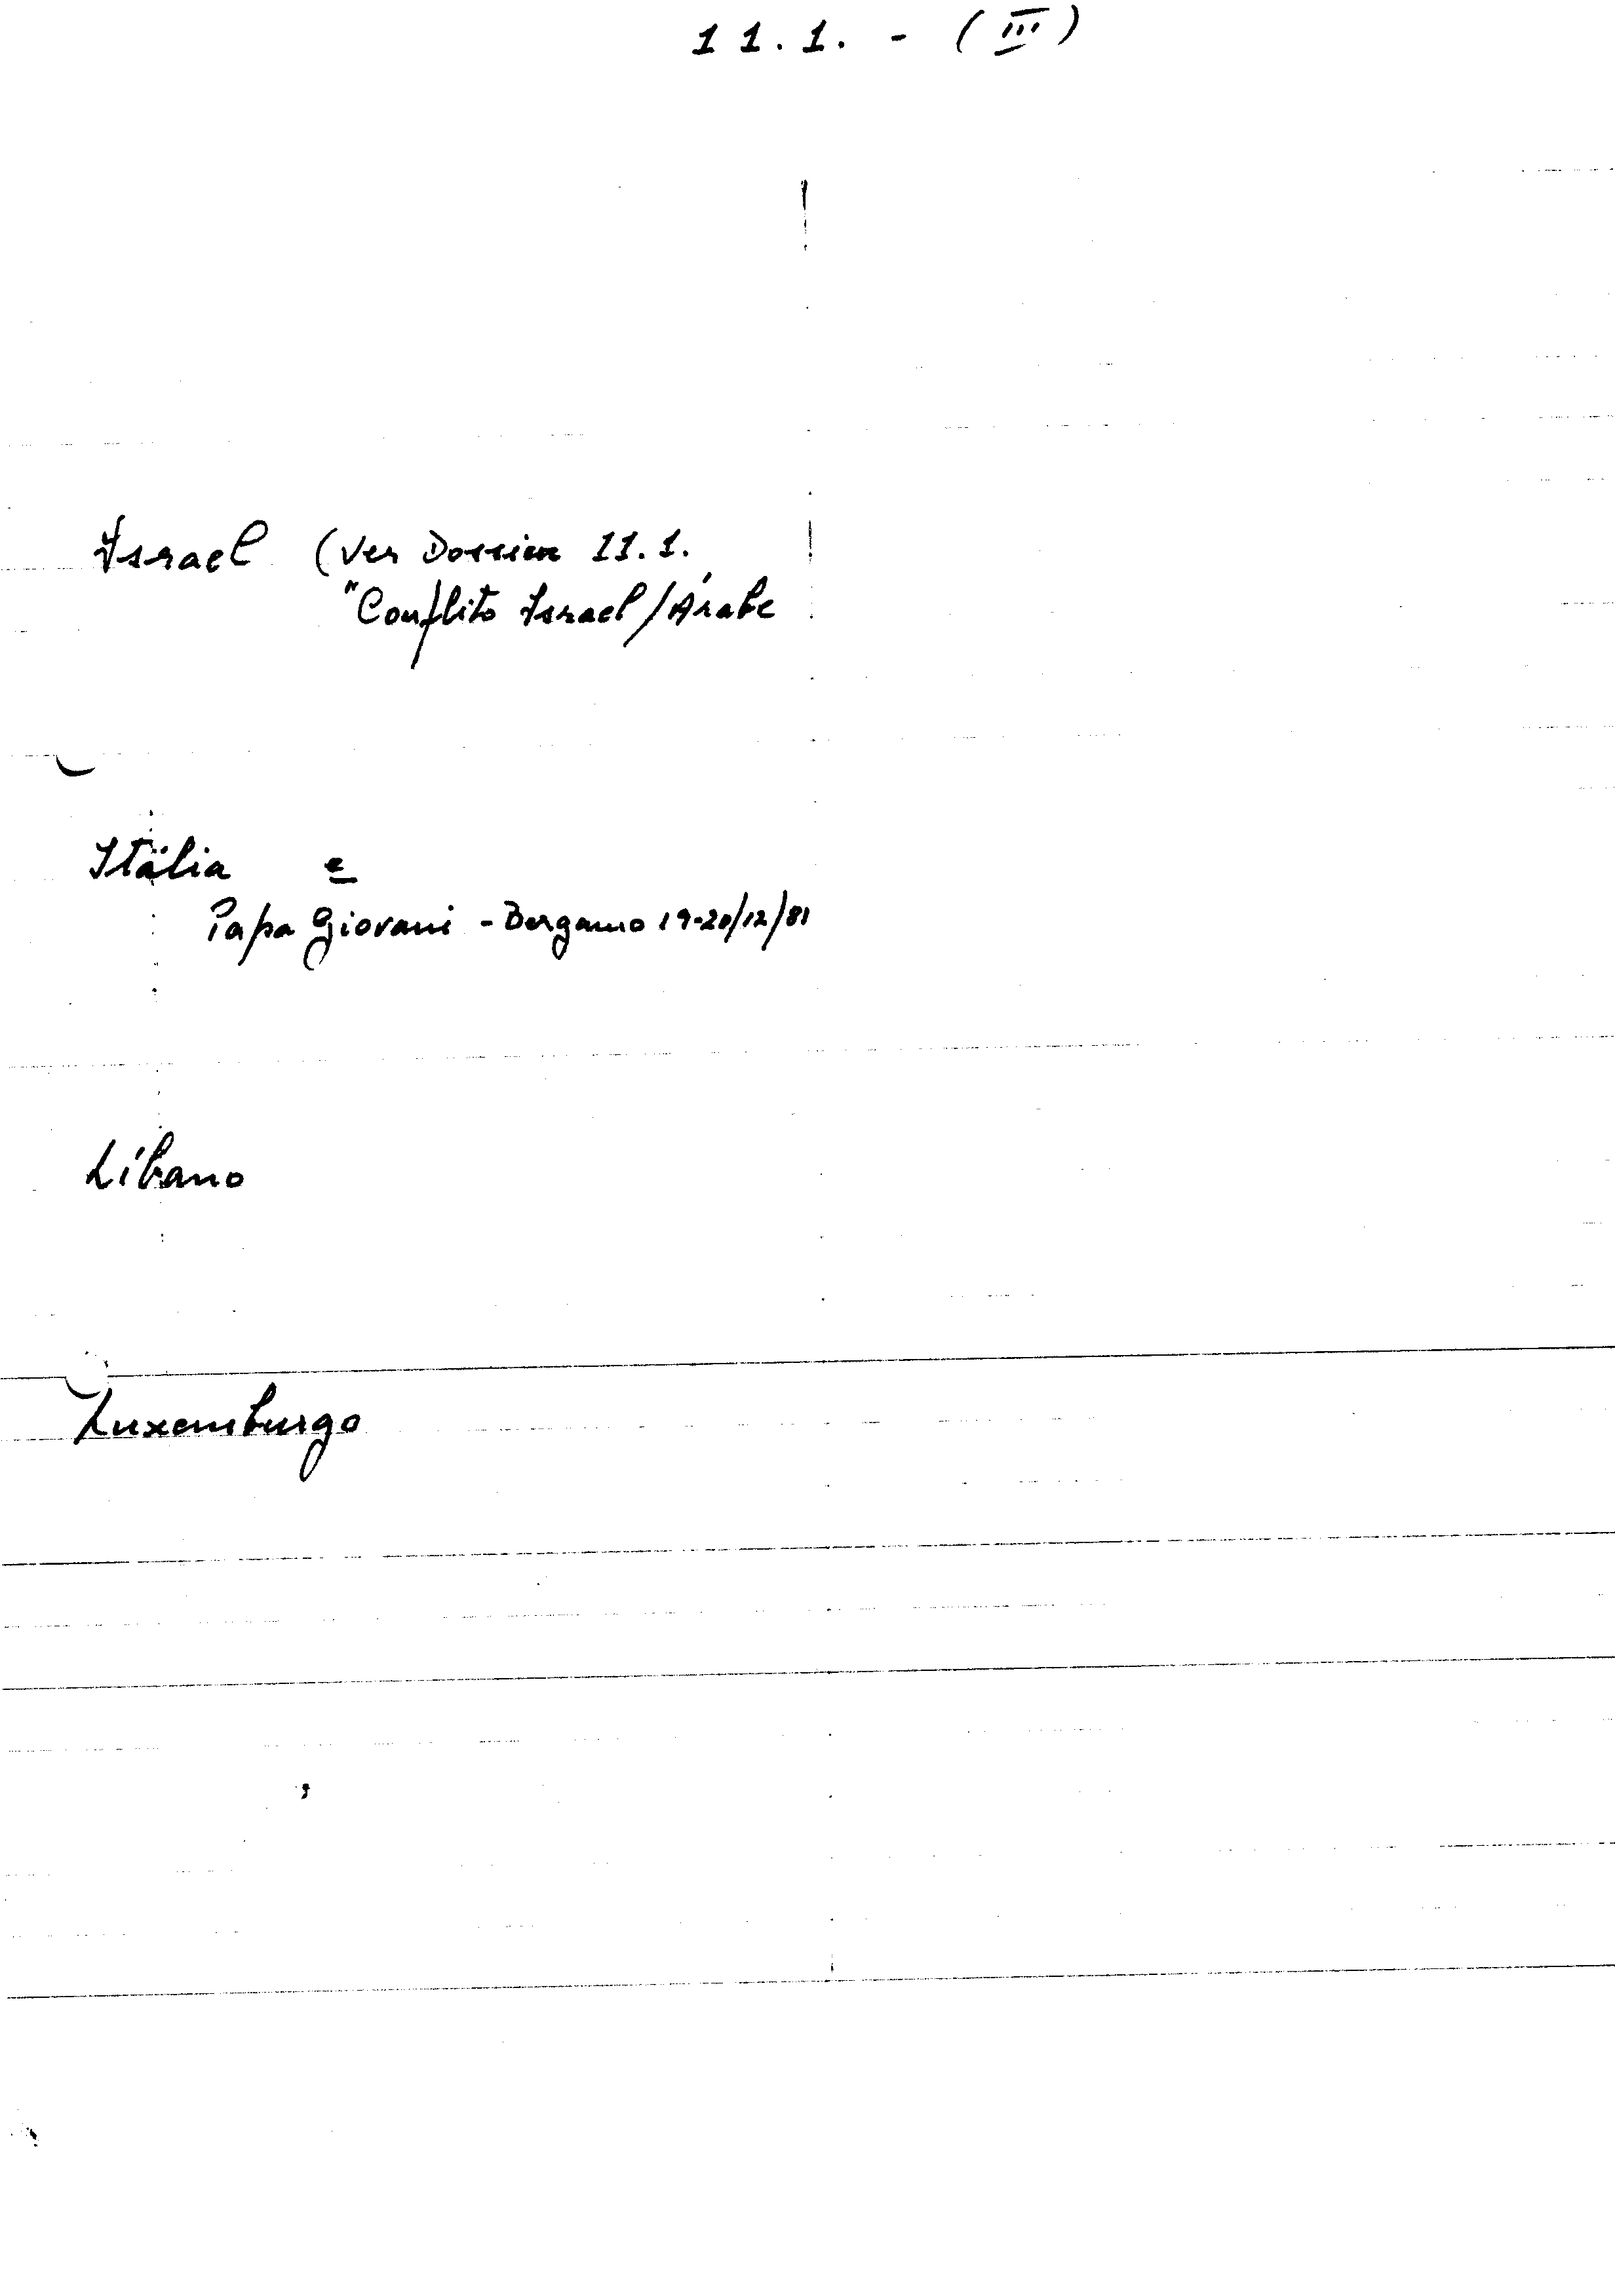 11.1. - (III)
Israel (Ver Dossier 11.1.
"Conflito Israel/Árabe
Itália e
Papa Giovani - Bergamo 19-20/12/81
Líbano
Luxemburgo